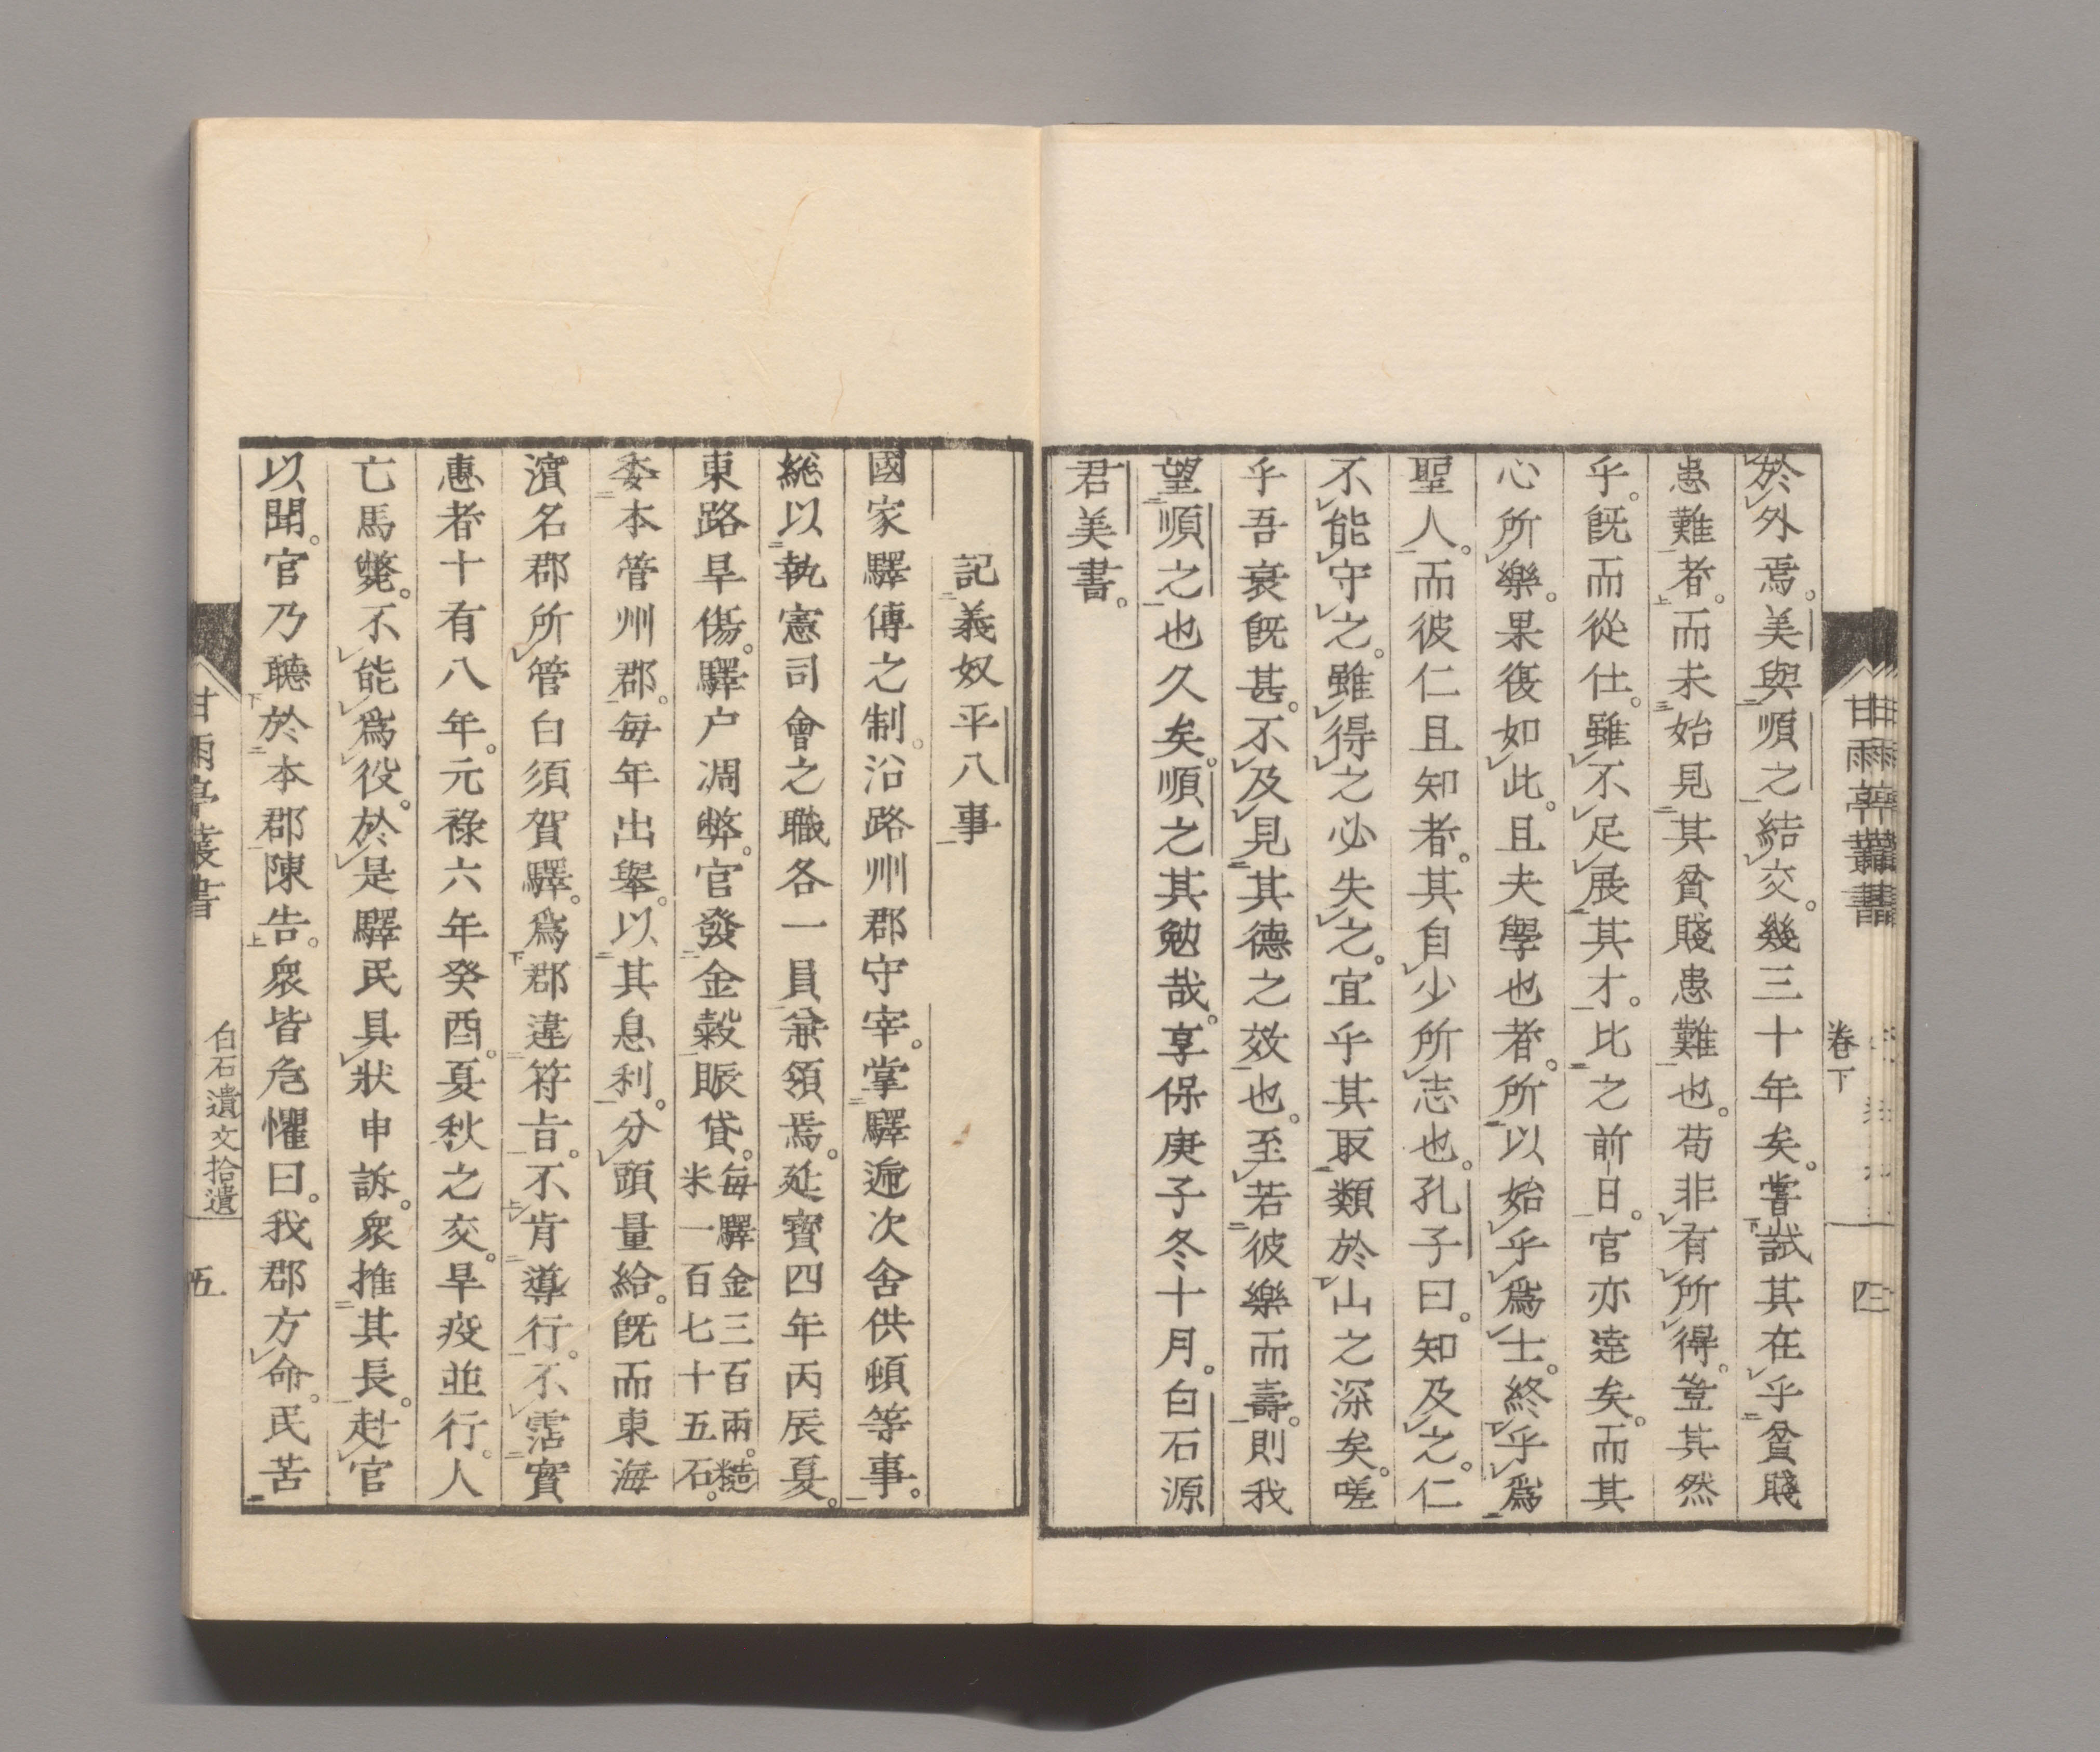 於外焉。美與順之結交。幾三十年矣。嘗試其在乎貧賤
患難者。而未始見其貧賤患難也。苟非有所得。豈其然
乎。既而從仕。雖不足展其才。比之前日。官亦達矣。而其
心所樂。果復如此。且夫學也者。所以始乎爲士。終乎爲
聖人。而彼仁且知者。其自少所志也。孔子曰。知及之。仁
不能守之。雖得之必失之。宜乎其取類於山之深矣。嗟
乎吾衰既甚。不及見其德之效也。至若彼樂而壽。則我
望順之也久矣。順之其勉哉。享保庚子冬十月。白石源
君美書。
甘雨亭叢書
卷下
四
記義奴平八事
國家驛傳之制。沿路州郡守宰。掌驛遞次舍供頓等事。
總以執憲司會之職各一員兼領焉。延寶四年丙辰夏。
東路旱傷。驛户凋弊。官發金穀賑貸。每驛金三百兩。糙
米一百七十五石。
委本管州郡。每年出舉。以其息利。分頭量給。既而東海
濱名郡所管白須賀驛。爲郡違符旨。不肯導行。不霑實
惠者十有八年。元祿六年癸酉。夏秋之交。旱疫並行。人
亡馬斃。不能爲役。於是驛民具狀申訴。衆推其長。赴官
以聞。官乃聽於本郡陳告。衆皆危懼曰。我郡方命。民苦
甘雨亭叢書
白石遺文拾遺
五